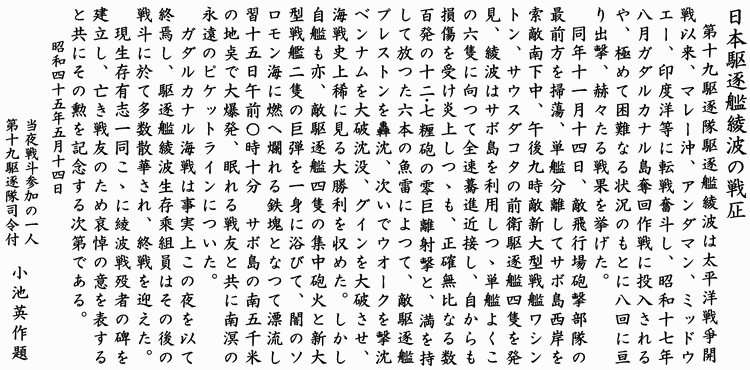 日本駆逐艦綾波の戦圧
第十九駆逐隊駆逐艦綾波は太平洋戦争開
戦以来、マレー沖、アンダマン、ミッドウ
エー、印度洋等に転戦奮斗し、昭和十七年
八月ガダルカナル島奪回作戦に投入される
や、極めて困難なる状況のもとに八回に亘
り出撃、赫々たる戦果を挙げた。
同年十一月十四日、敵飛行場砲撃部隊の
最前方を掃蕩、単艦分離してサボ島西岸を
索敵南下中、午後九時敵新大型戦艦ワシン
トン、サウスダコタの前衛駆逐艦四隻を発
見、綾波はサボ島を利用しつゝ単艦よくこ
の六隻に向つて全速驀進近接し、自からも
損傷を受け炎上しつゝも、正確無比なる数
百発の十二・七糎砲の零距離射撃と、満を持
して放つた六本の魚雷によつて、敵駆逐艦
プレストンを轟沈、次いでウオークを撃沈
ベンナムを大破沈没、グインを大破させ、
海戦史上稀に見る大勝利を収めた。しかし
自艦も亦、敵駆逐艦四隻の集中砲火と新大
型戦艦二隻の巨弾を一身に浴びて、闇のソ
ロモン海に燃へ爛れる鉄塊となつて漂流し
翌十五日午前〇時十分　サボ島の南五千米
の地点で大爆発、眠れる戦友と共に南溟の
永遠のピケットラインについた。
ガダルカナル海戦は事実上この夜を以て
終焉し、駆逐艦綾波生存乗組員はその後の
戦斗に於て多数散華され、終戦を迎えた。
現生存有志一同こゝに綾波戦歿者の碑を
建立し、亡き戦友のため哀悼の意を表する
と共にその勲を記念する次第である。
昭和四十五年五月十四日
当夜戦斗参加の一人
第十九駆逐隊司令付　小池英作題